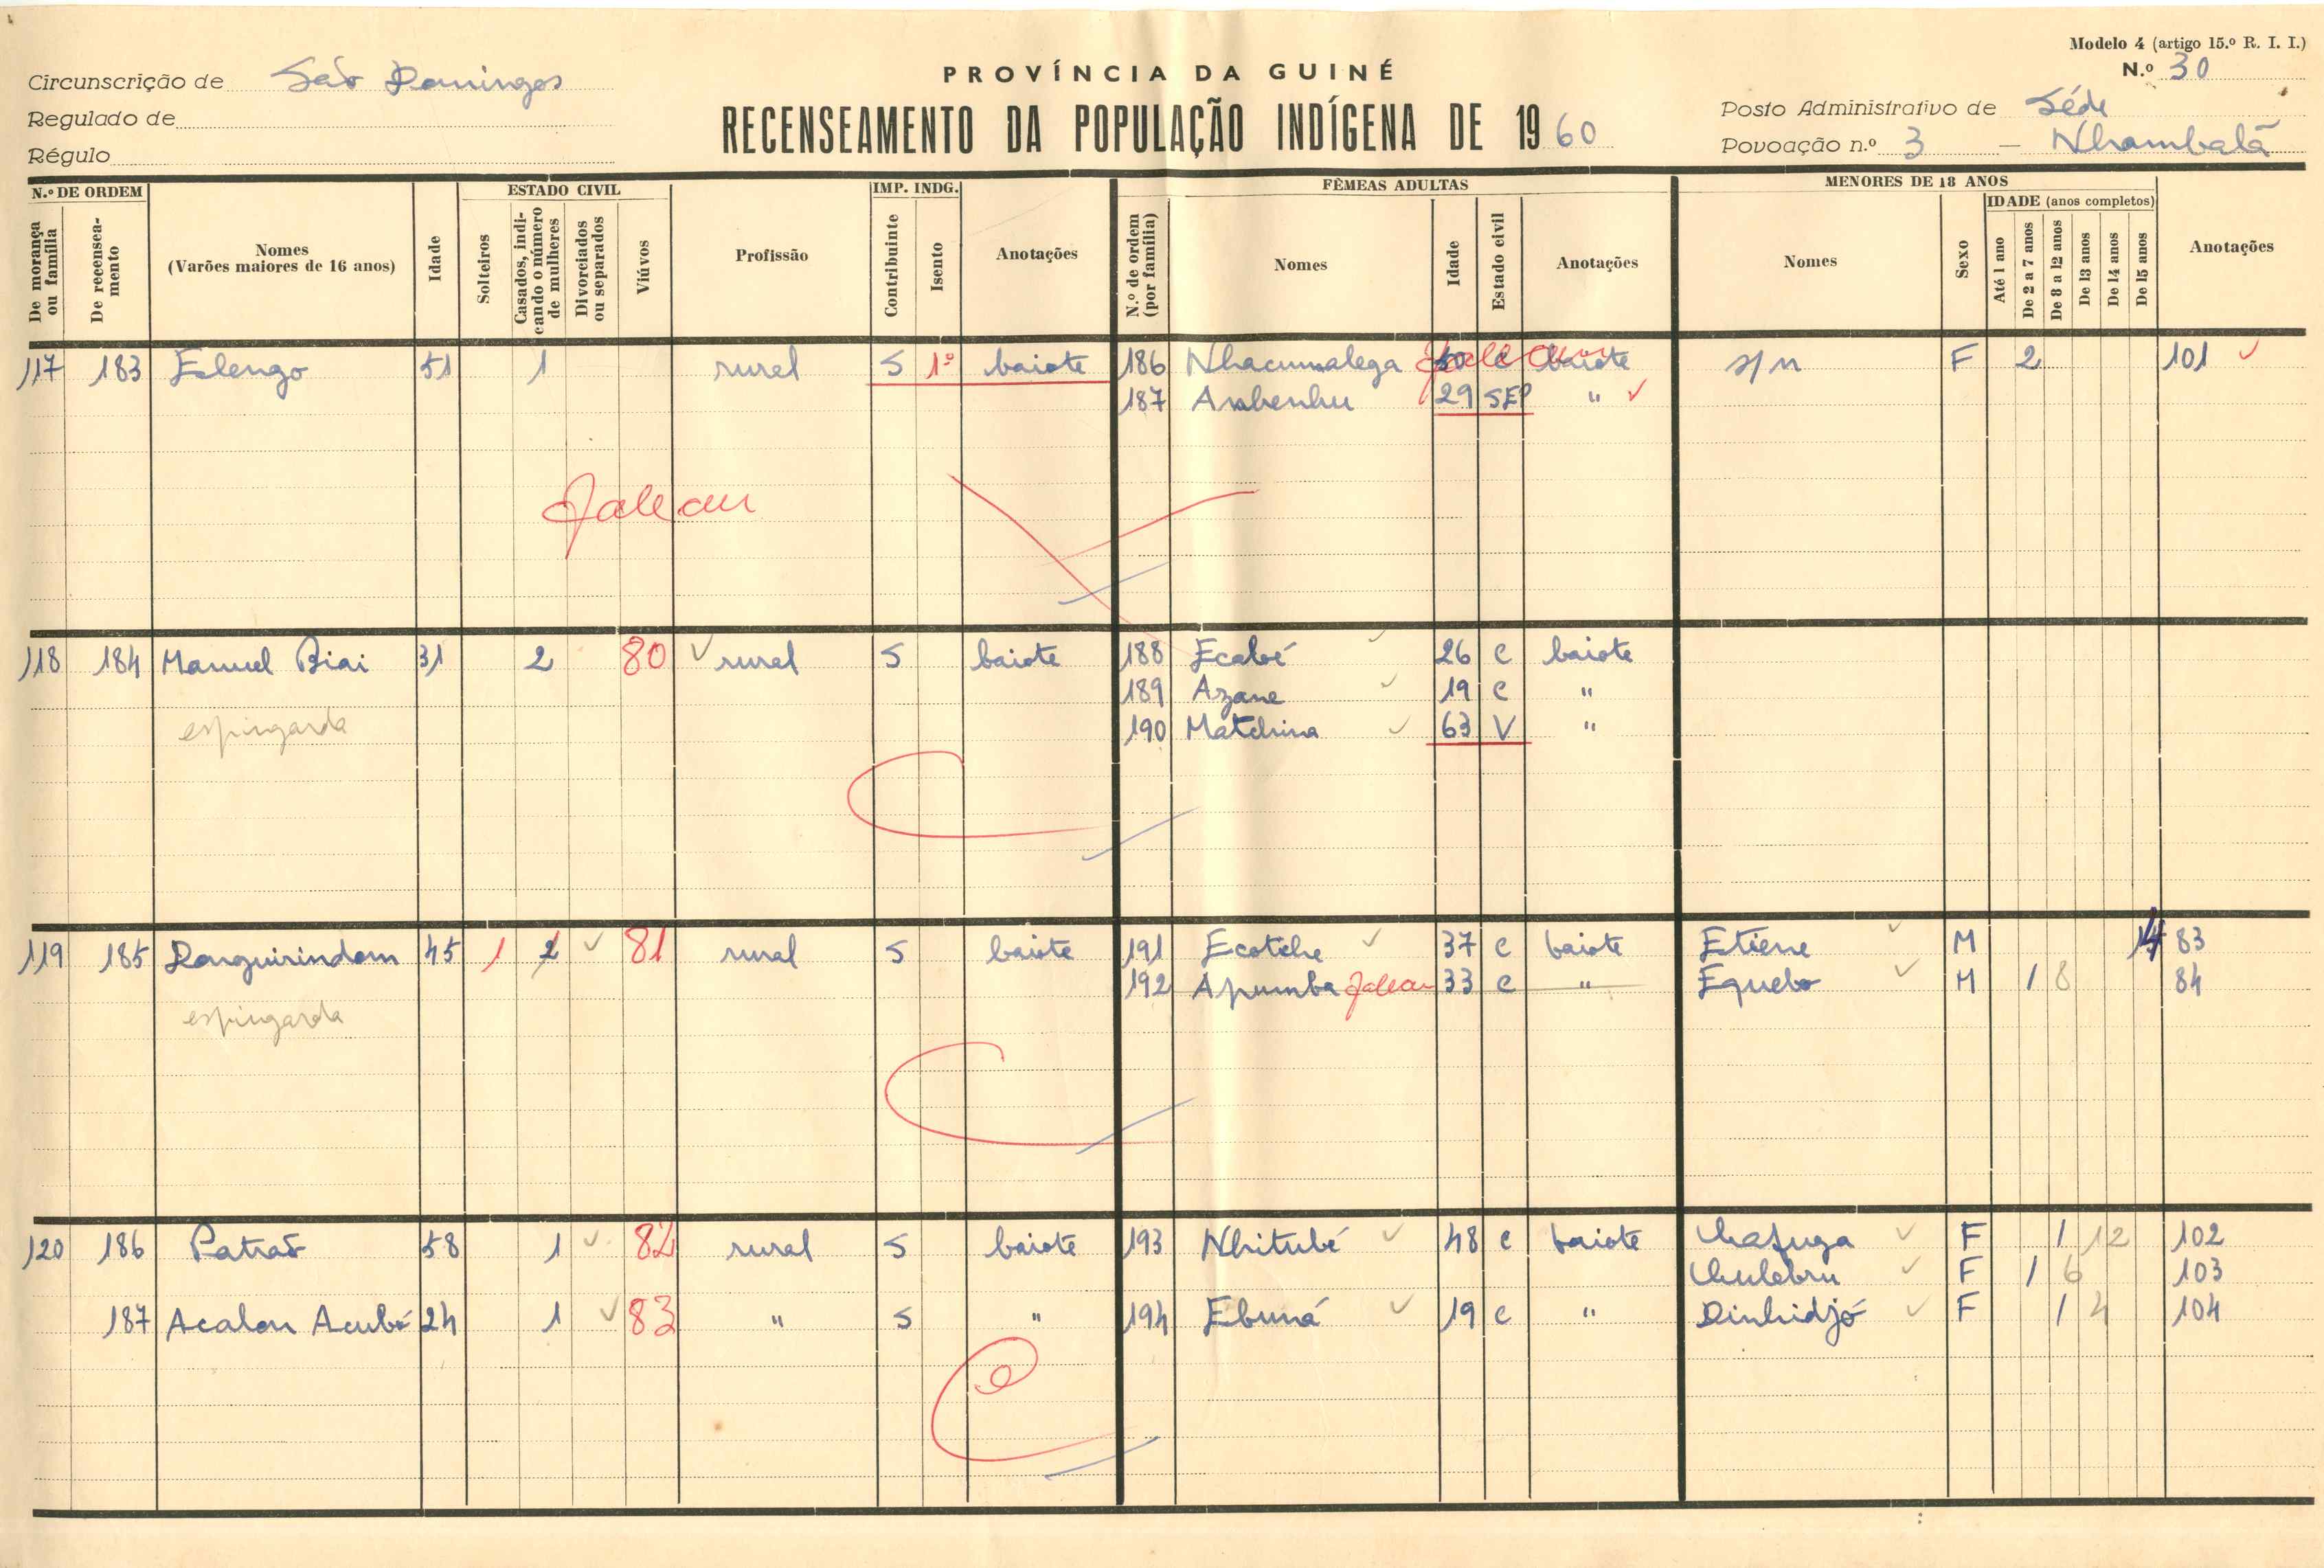 Modelo 4 (artigo 15.º R. I. I.)
N.º 30
PROVÍNCIA DA GUINÉ
RECENSEAMENTO DA POPULAÇÃO INDÍGENA DE 1960
Circunscrição de São Domingos
Regulado de
Régulo
Posto Administrativo de Séde
Povoação n.º 3 — Nhambalã
N.º DE ORDEM
De morança ou família
De recenseamento
Nomes
(Varões maiores de 16 anos)
Idade
ESTADO CIVIL
Solteiros
Casados, indicando o número de mulheres
Divorciados ou separados
Viúvos
Profissão
IMP. INDG.
Contribuinte
Isento
Anotações
FÊMEAS ADULTAS
N.º de ordem (por família)
Nomes
Idade
Estado civil
Anotações
MENORES DE 18 ANOS
Nomes
Sexo
IDADE (anos completos)
Até 1 ano
De 2 a 7 anos
De 8 a 12 anos
De 13 anos
De 14 anos
De 15 anos
Anotações
117 183 Elengo 51 1 rural S 1º baiote 186 Nhacumalega c baiote s/n F 2 101
187 29 SEP "
Faleceu
118 184 Manuel Biai 31 2 80 rural S baiote 188 Ecabé 26 c baiote
189 Azane 19 c "
espingarda 190 Matchina 63 V "
119 185 Danguirindam 45 1 2 81 rural S baiote 191 Ecotche 37 c baiote Etiene M 14 83
192 Apumba Faleceu 33 c " Equebo M 1 8 84
espingarda
120 186 Patrão 58 1 82 rural S baiote 193 Nhitubé 48 c baiote F 1 12 102
F 1 6 103
187 Acalon Acubé 24 1 83 " S " 194 Ebuná 19 c " Dinhidjó F 1 4 104